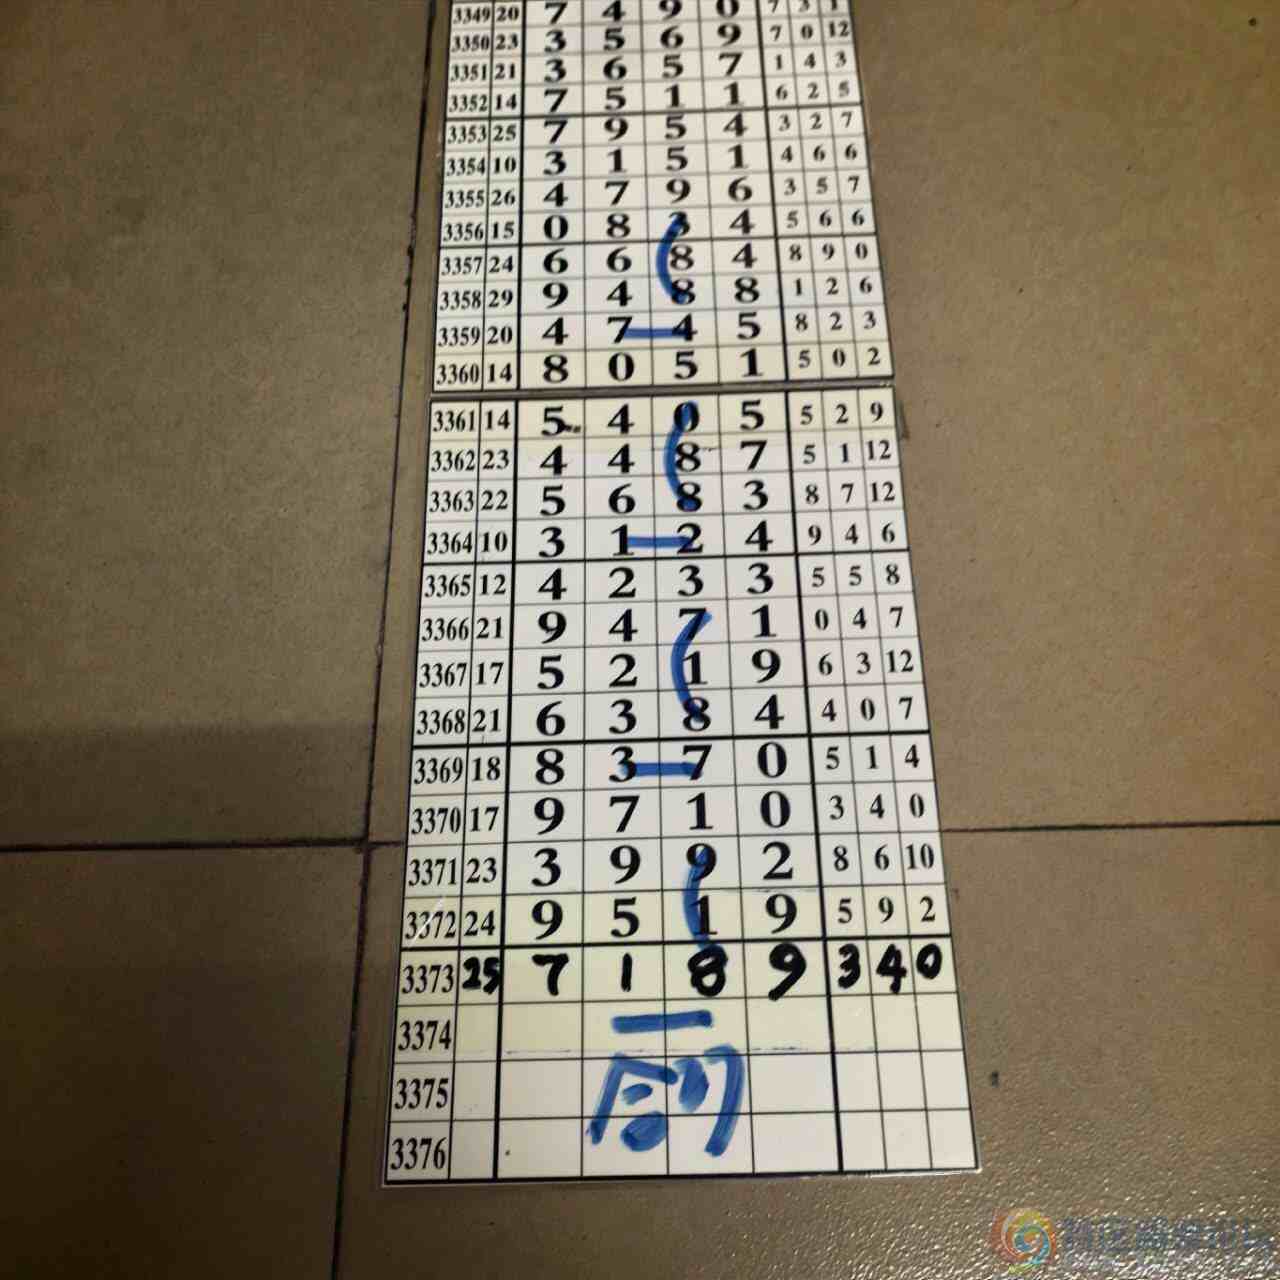 3349 20 7 4 9 0 7 3 1
3350 23 3 5 6 9 7 0 12
3351 21 3 6 5 7 1 4 3
3352 14 7 5 1 1 6 2 5
3353 25 7 9 5 4 3 2 7
3354 10 3 1 5 1 4 6 6
3355 26 4 7 9 6 3 5 7
3356 15 0 8 3 4 5 6 6
3357 24 6 6 8 4 8 9 0
3358 29 9 4 8 8 1 2 6
3359 20 4 7 4 5 8 2 3
3360 14 8 0 5 1 5 0 2
3361 14 5 4 0 5 5 2 9
3362 23 4 4 8 7 5 1 12
3363 22 5 6 8 3 8 7 12
3364 10 3 1 2 4 9 4 6
3365 12 4 2 3 3 5 5 8
3366 21 9 4 7 1 0 4 7
3367 17 5 2 1 9 6 3 12
3368 21 6 3 8 4 4 0 7
3369 18 8 3 7 0 5 1 4
3370 17 9 7 1 0 3 4 0
3371 23 3 9 9 2 8 6 10
3372 24 9 5 1 9 5 9 2
3373 25 7 1 8 9 3 4 0
3374
3375
3376